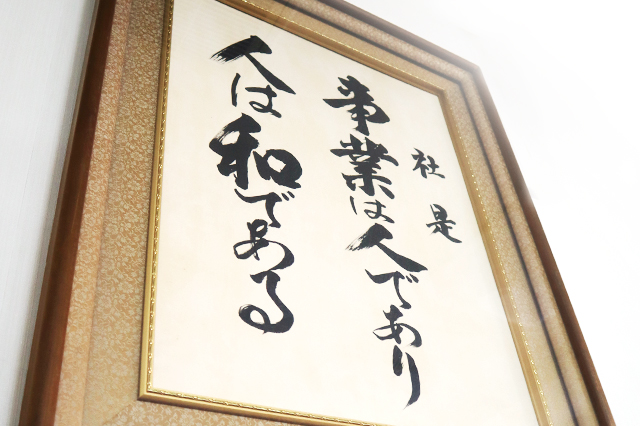 社是
事業は人であり
人は和である